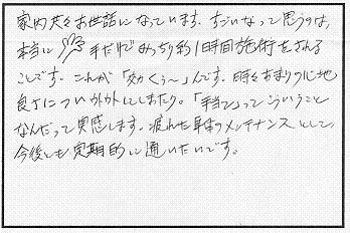 家内共々お世話になっています。すごいなって思うのは、
本当に手だけでめっちり約1時間施術をされる
ことです。これが「効めくぅ〜」んです。時々あまりの心地
良さについウトウトしてしまったり。「手当て」ってこういうこと
なんだって実感します。疲れた身体のメンテナンスとして、
今後とも定期的に通いたいです。